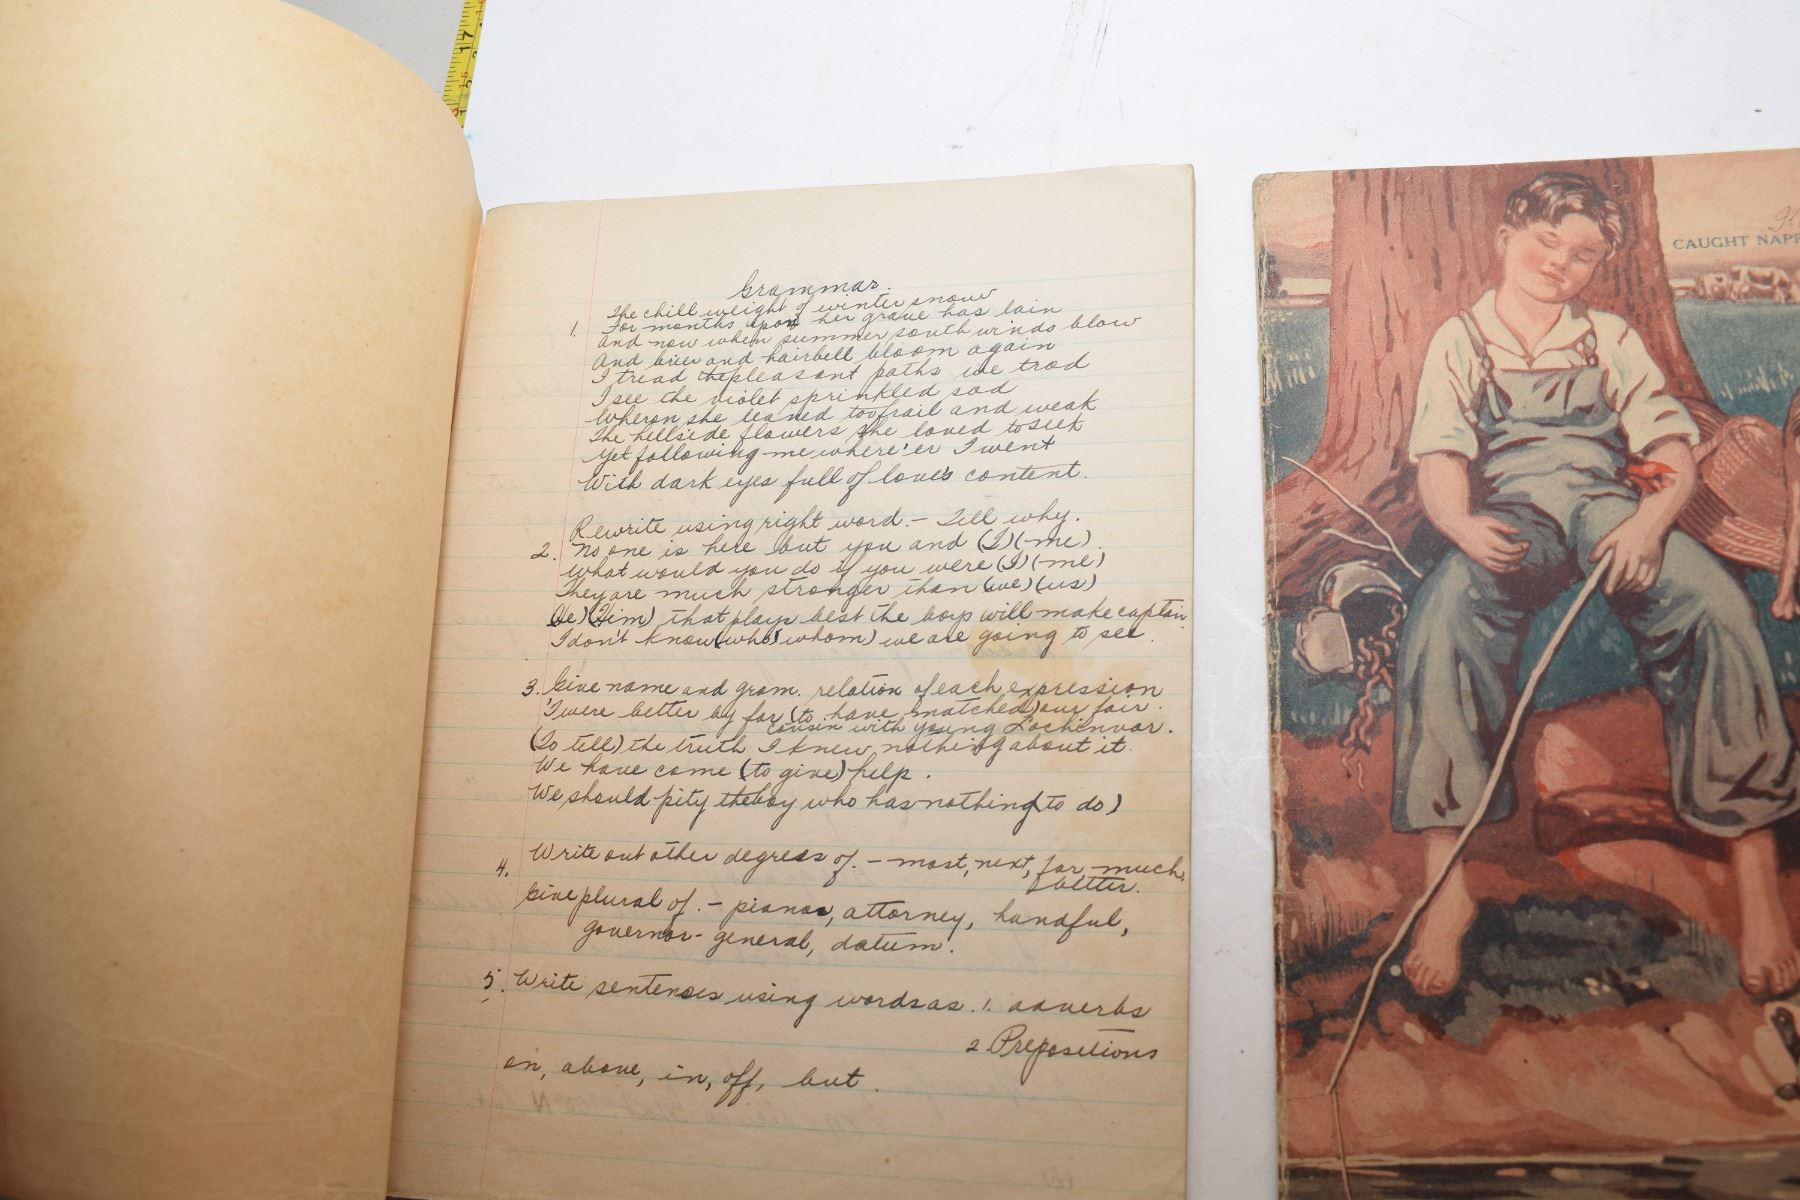 Grammar.
1. The chill weight of winter snow
For months upon her grave has lain
And now when summer south winds blow
And brier and hairbell bloom again
I tread the pleasant paths we trod
I see the violet sprinkled sod
Wheron she leaned too frail and weak
The hillside flowers she loved to seek
Yet following me where'er I went
With dark eyes full of love's content.
Rewrite using right word. - Tell why.
2. No one is here but you and (I) (me).
What would you do if you were (I) (me)
They are much stronger than (we) (us)
(He) (Him) that plays best the boys will make captain.
I don't know (who) (whom) we are going to see.
3. Give name and gram. relation of each expression
'Twere better by far (to have matched) our fair
cousin with young Lochinvar.
(To tell) the truth I knew nothing about it.
We have come (to give) help.
We should pity the boy who has nothing (to do)
4. Write out other degrees of. - most, next, far, much,
better.
Give plural of. - pianos, attorney, handful,
governor-general, datum.
5. Write sentences using words as. 1. adverbs
2. Prepositions
on, above, in, off, but.
CAUGHT NAPP
17